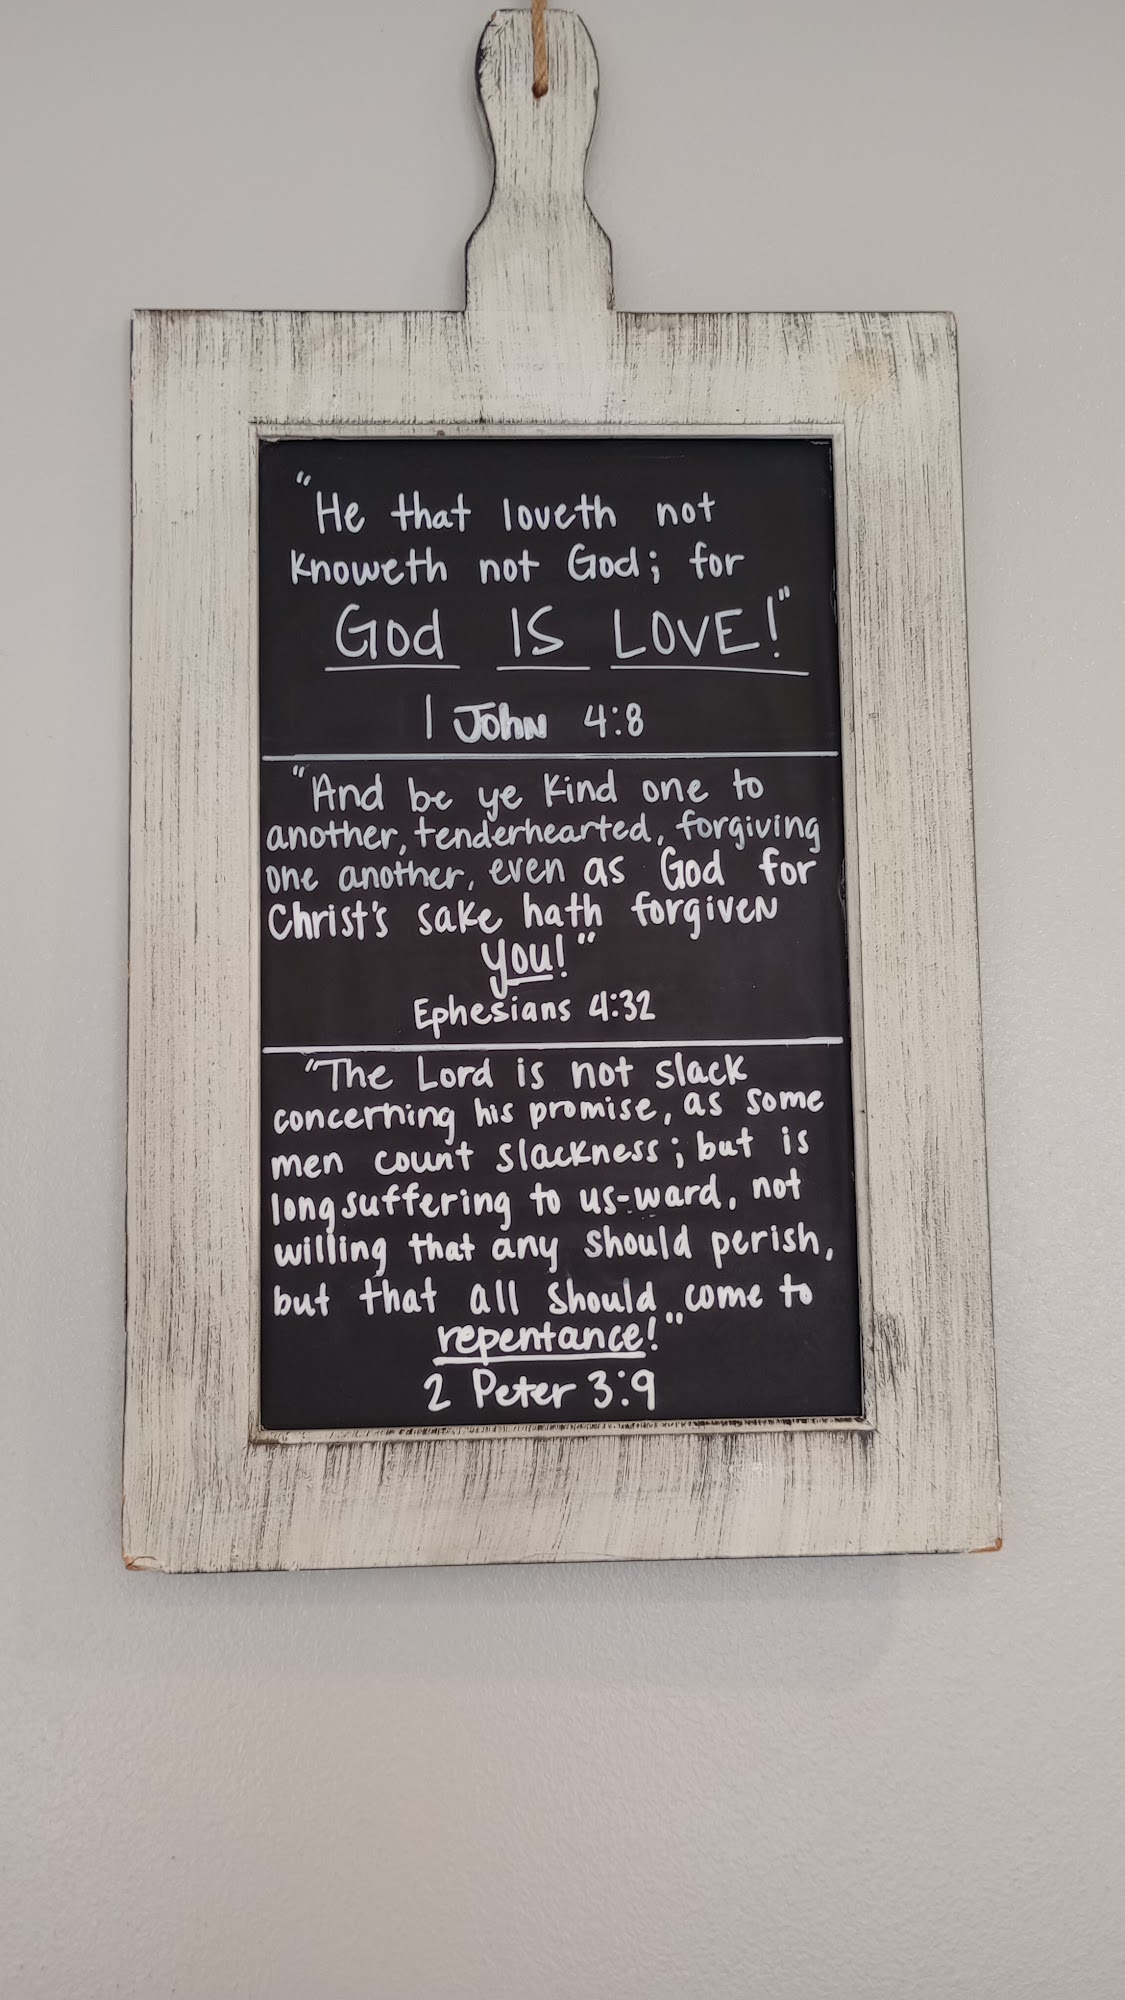 "He that loveth not
knoweth not God; for
God IS LOVE!"
1 John 4:8
"And be ye kind one to
another, tenderhearted, forgiving
one another, even as God for
Christ's sake hath forgiven
you!"
Ephesians 4:32
"The Lord is not slack
concerning his promise, as some
men count slackness; but is
longsuffering to us-ward, not
willing that any should perish,
but that all should come to
repentance!"
2 Peter 3:9